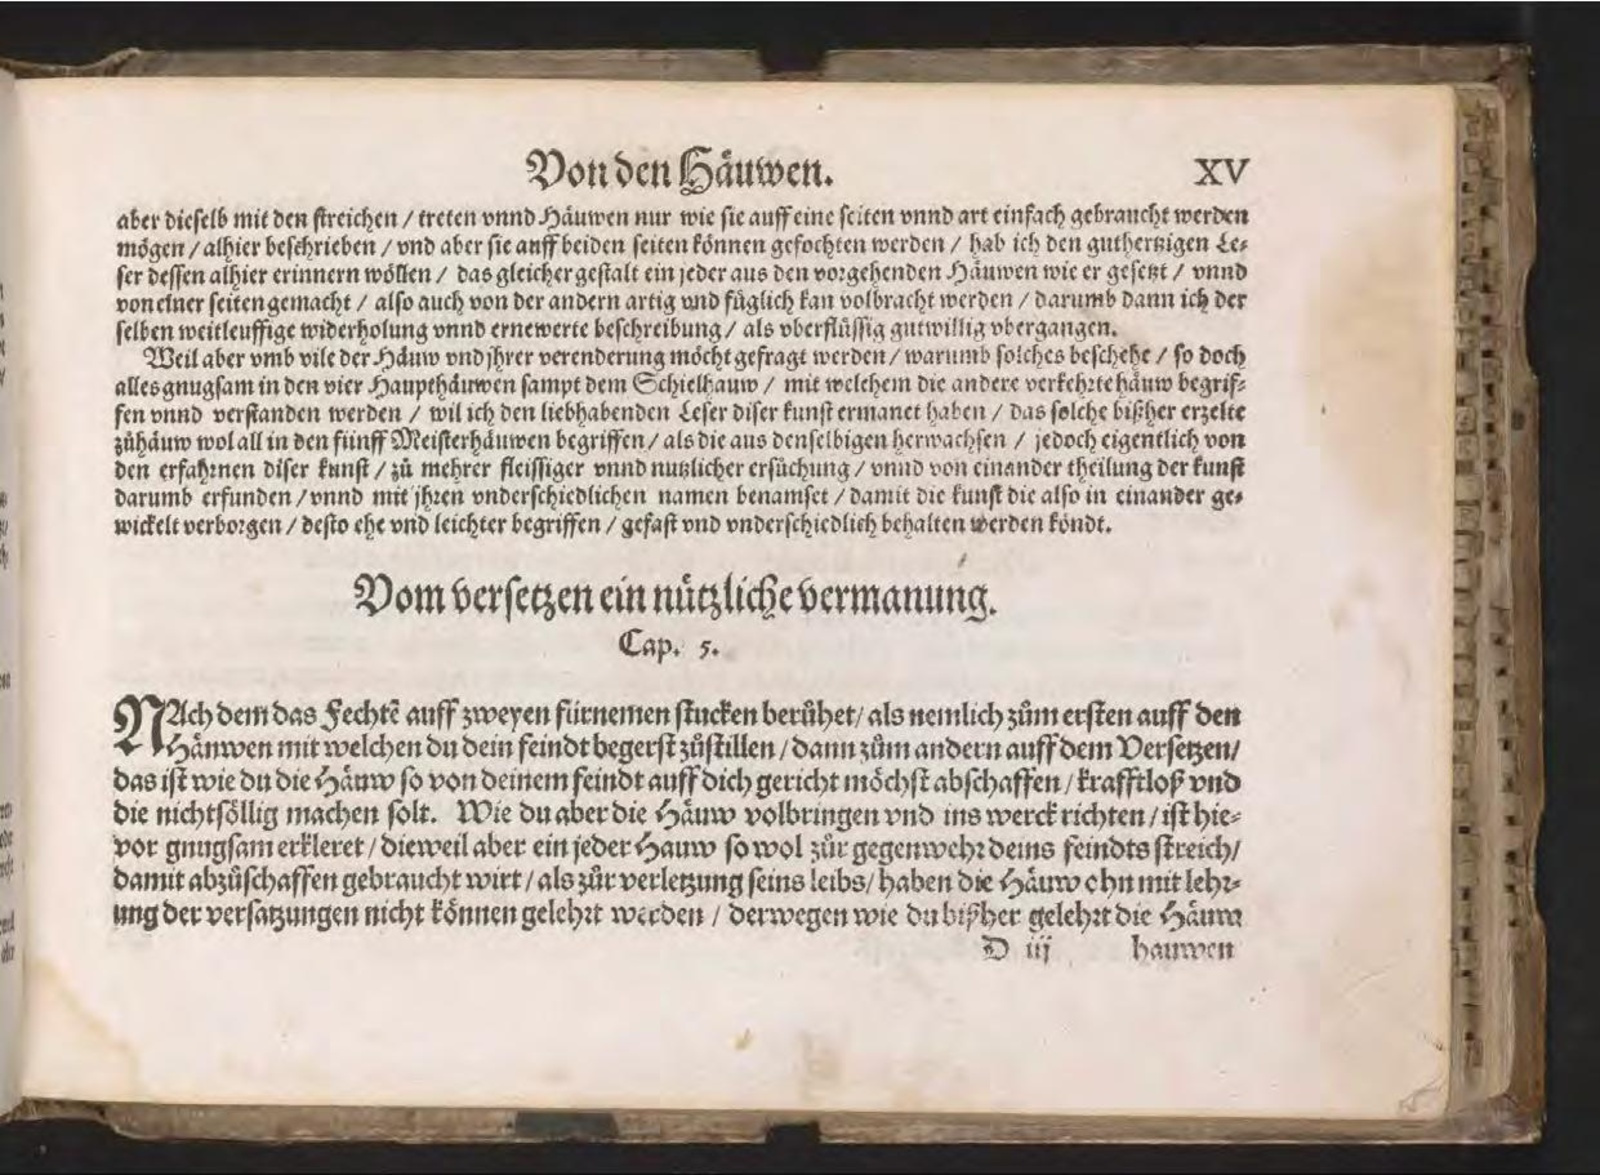 Von den Häuwen. XV
aber dieselb mit den streichen / treten vnnd Häuwen nur wie sie auff eine seiten vnnd art einfach gebraucht werden
mögen / alhier beschrieben / vnd aber sie auff beiden seiten können gefochten werden / hab ich den guthertzigen Le⸗
ser dessen alhier erinnern wöllen / das gleicher gestalt ein jeder aus den vorgehenden Häuwen wie er gesetzt / vnnd
von einer seiten gemacht / also auch von der andern artig vnd füglich kan volbracht werden / darumb dann ich der
selben weitleuffige widerholung vnnd ernewerte beschreibung / als vberflüssig gutwillig vbergangen.
Weil aber vmb vile der Häuw vnd jhrer verenderung möcht gefragt werden / warumb solches beschehe / so doch
alles gnugsam in den vier Haupthäuwen sampt dem Schielhauw / mit welchem die andere verkehrte häuw begrif⸗
fen vnnd verstanden werden / wil ich den liebhabenden Leser diser kunst ermanet haben / das solche bißher erzelte
zůhäuw wol all in den fünff Meisterhäuwen begriffen / als die aus denselbigen herwachsen / jedoch eigentlich von
den erfahrnen diser kunst / zů mehrer fleissiger vnnd nutzlicher ersůchung / vnnd von einander theilung der kunst
darumb erfunden / vnnd mit jhren vnderschiedlichen namen benamset / damit die kunst die also in einander ge⸗
wickelt verborgen / desto ehe vnd leichter begriffen / gefast vnd vnderschiedlich behalten werden köndt.
Vom versetzen ein nützliche vermanung.
Cap. 5.
NAch dem das Fechtē auff zweyen fürnemen stucken berůhet / als nemlich zům ersten auff den
Häuwen mit welchen du dein feindt begerst zůstillen / dann zům andern auff dem Versetzen /
das ist wie du die Häuw so von deinem feindt auff dich gericht möchst abschaffen / krafftloß vnd
die nichtsöllig machen solt. Wie du aber die Häuw volbringen vnd ins werck richten / ist hie⸗
vor gnugsam erkleret / dieweil aber ein jeder Hauw so wol zůr gegenwehr deins feindts streich /
damit abzůschaffen gebraucht wirt / als zůr verletzung seins leibs / haben die Häuw ohn mit lehr⸗
ung der versatzungen nicht können gelehrt werden / derwegen wie du bißher gelehrt die Häuw
D iij hauwen